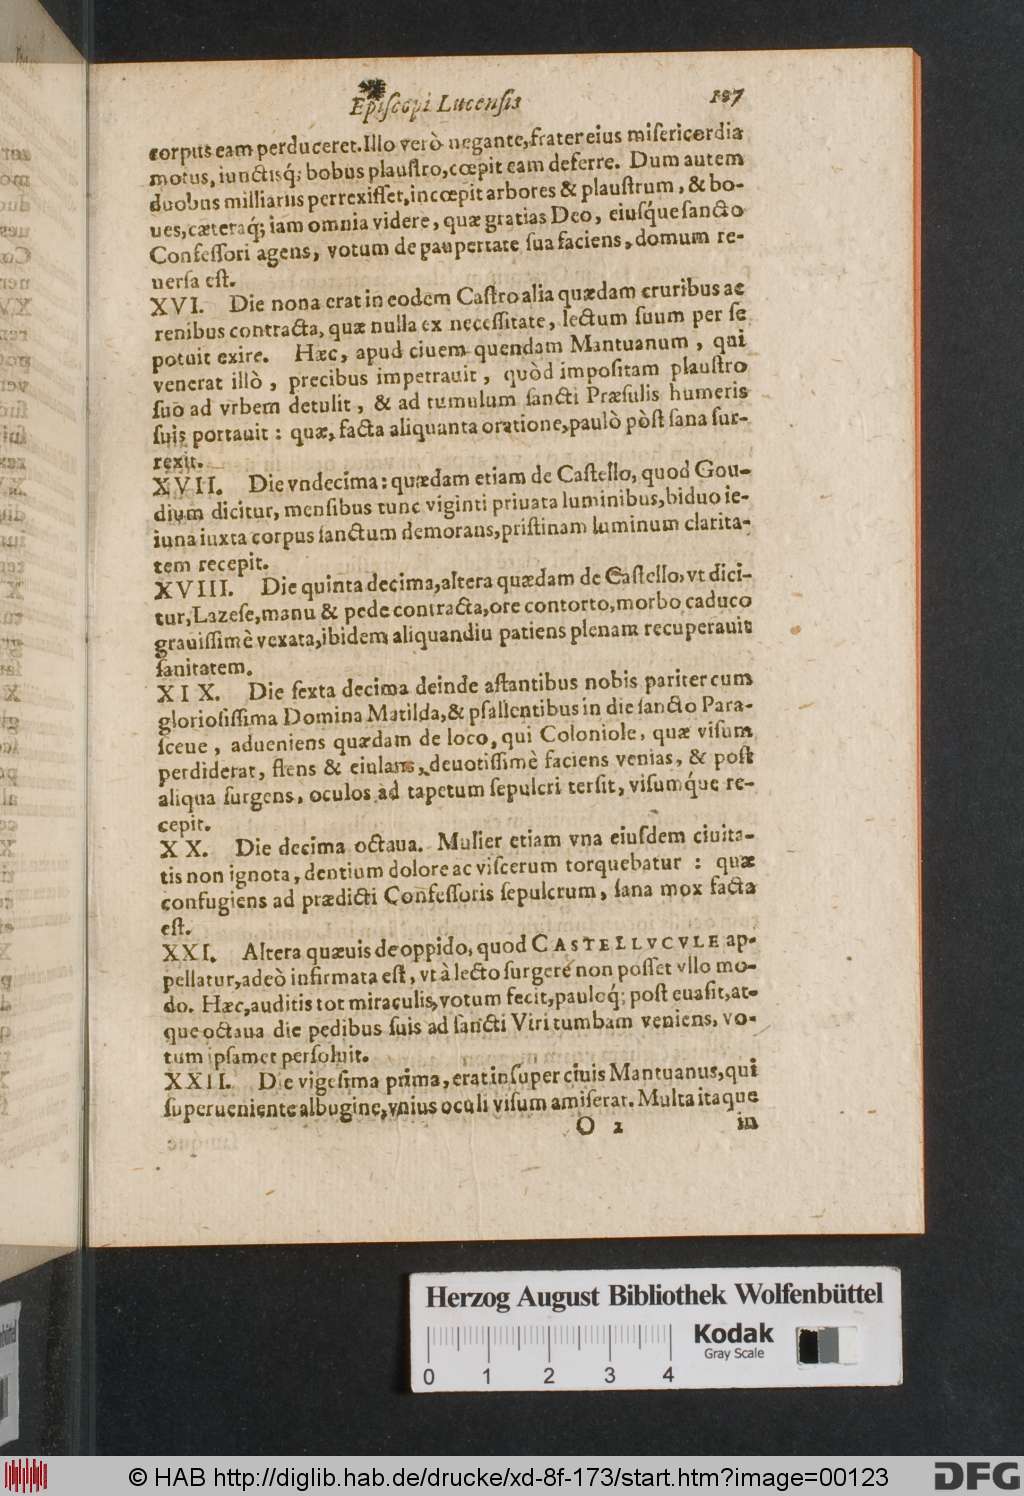 Episcopi Lucensis 107
corpus eam perduceret. Illo verò negante, frater eius misericordia
motus, iunctisq́; bobus plaustro, cœpit eam deferre. Dum autem
duobus milliariis perrexisset, incœpit arbores & plaustrum, & bo-
ues, cæteraq́; iam omnia videre, quæ gratias Deo, eiusq́ue sancto
Confessori agens, votum de paupertate sua faciens, domum re-
uersa est.
XVI. Die nona erat in eodem Castro alia quædam cruribus ac
renibus contracta, quæ nulla ex necessitate, lectum suum per se
potuit exire. Hæc, apud ciuem quendam Mantuanum, qui
venerat illò, precibus impetrauit, quòd impositam plaustro
suo ad vrbem detulit, & ad tumulum sancti Præsulis humeris
suis portauit: quæ, facta aliquanta oratione, paulò pòst sana sur-
rexit.
XVII. Die vndecima: quædam etiam de Castello, quod Gou-
dium dicitur, mensibus tunc viginti priuata luminibus, biduo ie-
iuna iuxta corpus sanctum demorans, pristinam luminum clarita-
tem recepit.
XVIII. Die quinta decima, altera quædam de Castello, vt dici-
tur, Lazese, manu & pede contracta, ore contorto, morbo caduco
grauissimè vexata, ibidem aliquandiu patiens plenam recuperauit
sanitatem.
XIX. Die sexta decima deinde astantibus nobis pariter cum
gloriosissima Domina Matilda, & psallentibus in die sancto Para-
sceue, adueniens quædam de loco, qui Coloniole, quæ visum
perdiderat, flens & eiulans, deuotissimè faciens venias, & post
aliqua surgens, oculos ad tapetum sepulcri tersit, visumq́ue re-
cepit.
XX. Die decima octaua. Mulier etiam vna eiusdem ciuita-
tis non ignota, dentium dolore ac viscerum torquebatur: quæ
confugiens ad prædicti Confessoris sepulcrum, sana mox facta
est.
XXI. Altera quæuis de oppido, quod CASTELLVCVLE ap-
pellatur, adeò infirmata est, vt à lecto surgere non posset vllo mo-
do. Hæc, auditis tot miraculis, votum fecit, pauloq́; post euasit, at-
que octaua die pedibus suis ad sancti Viri tumbam veniens, vo-
tum ipsamet persoluit.
XXII. Die vigesima prima, erat insuper ciuis Mantuanus, qui
superueniente albugine, vnius oculi visum amiserat. Multa itaque
O 2 in
Herzog August Bibliothek Wolfenbüttel
Kodak
Gray Scale
0 1 2 3 4
© HAB http://diglib.hab.de/drucke/xd-8f-173/start.htm?image=00123
DFG